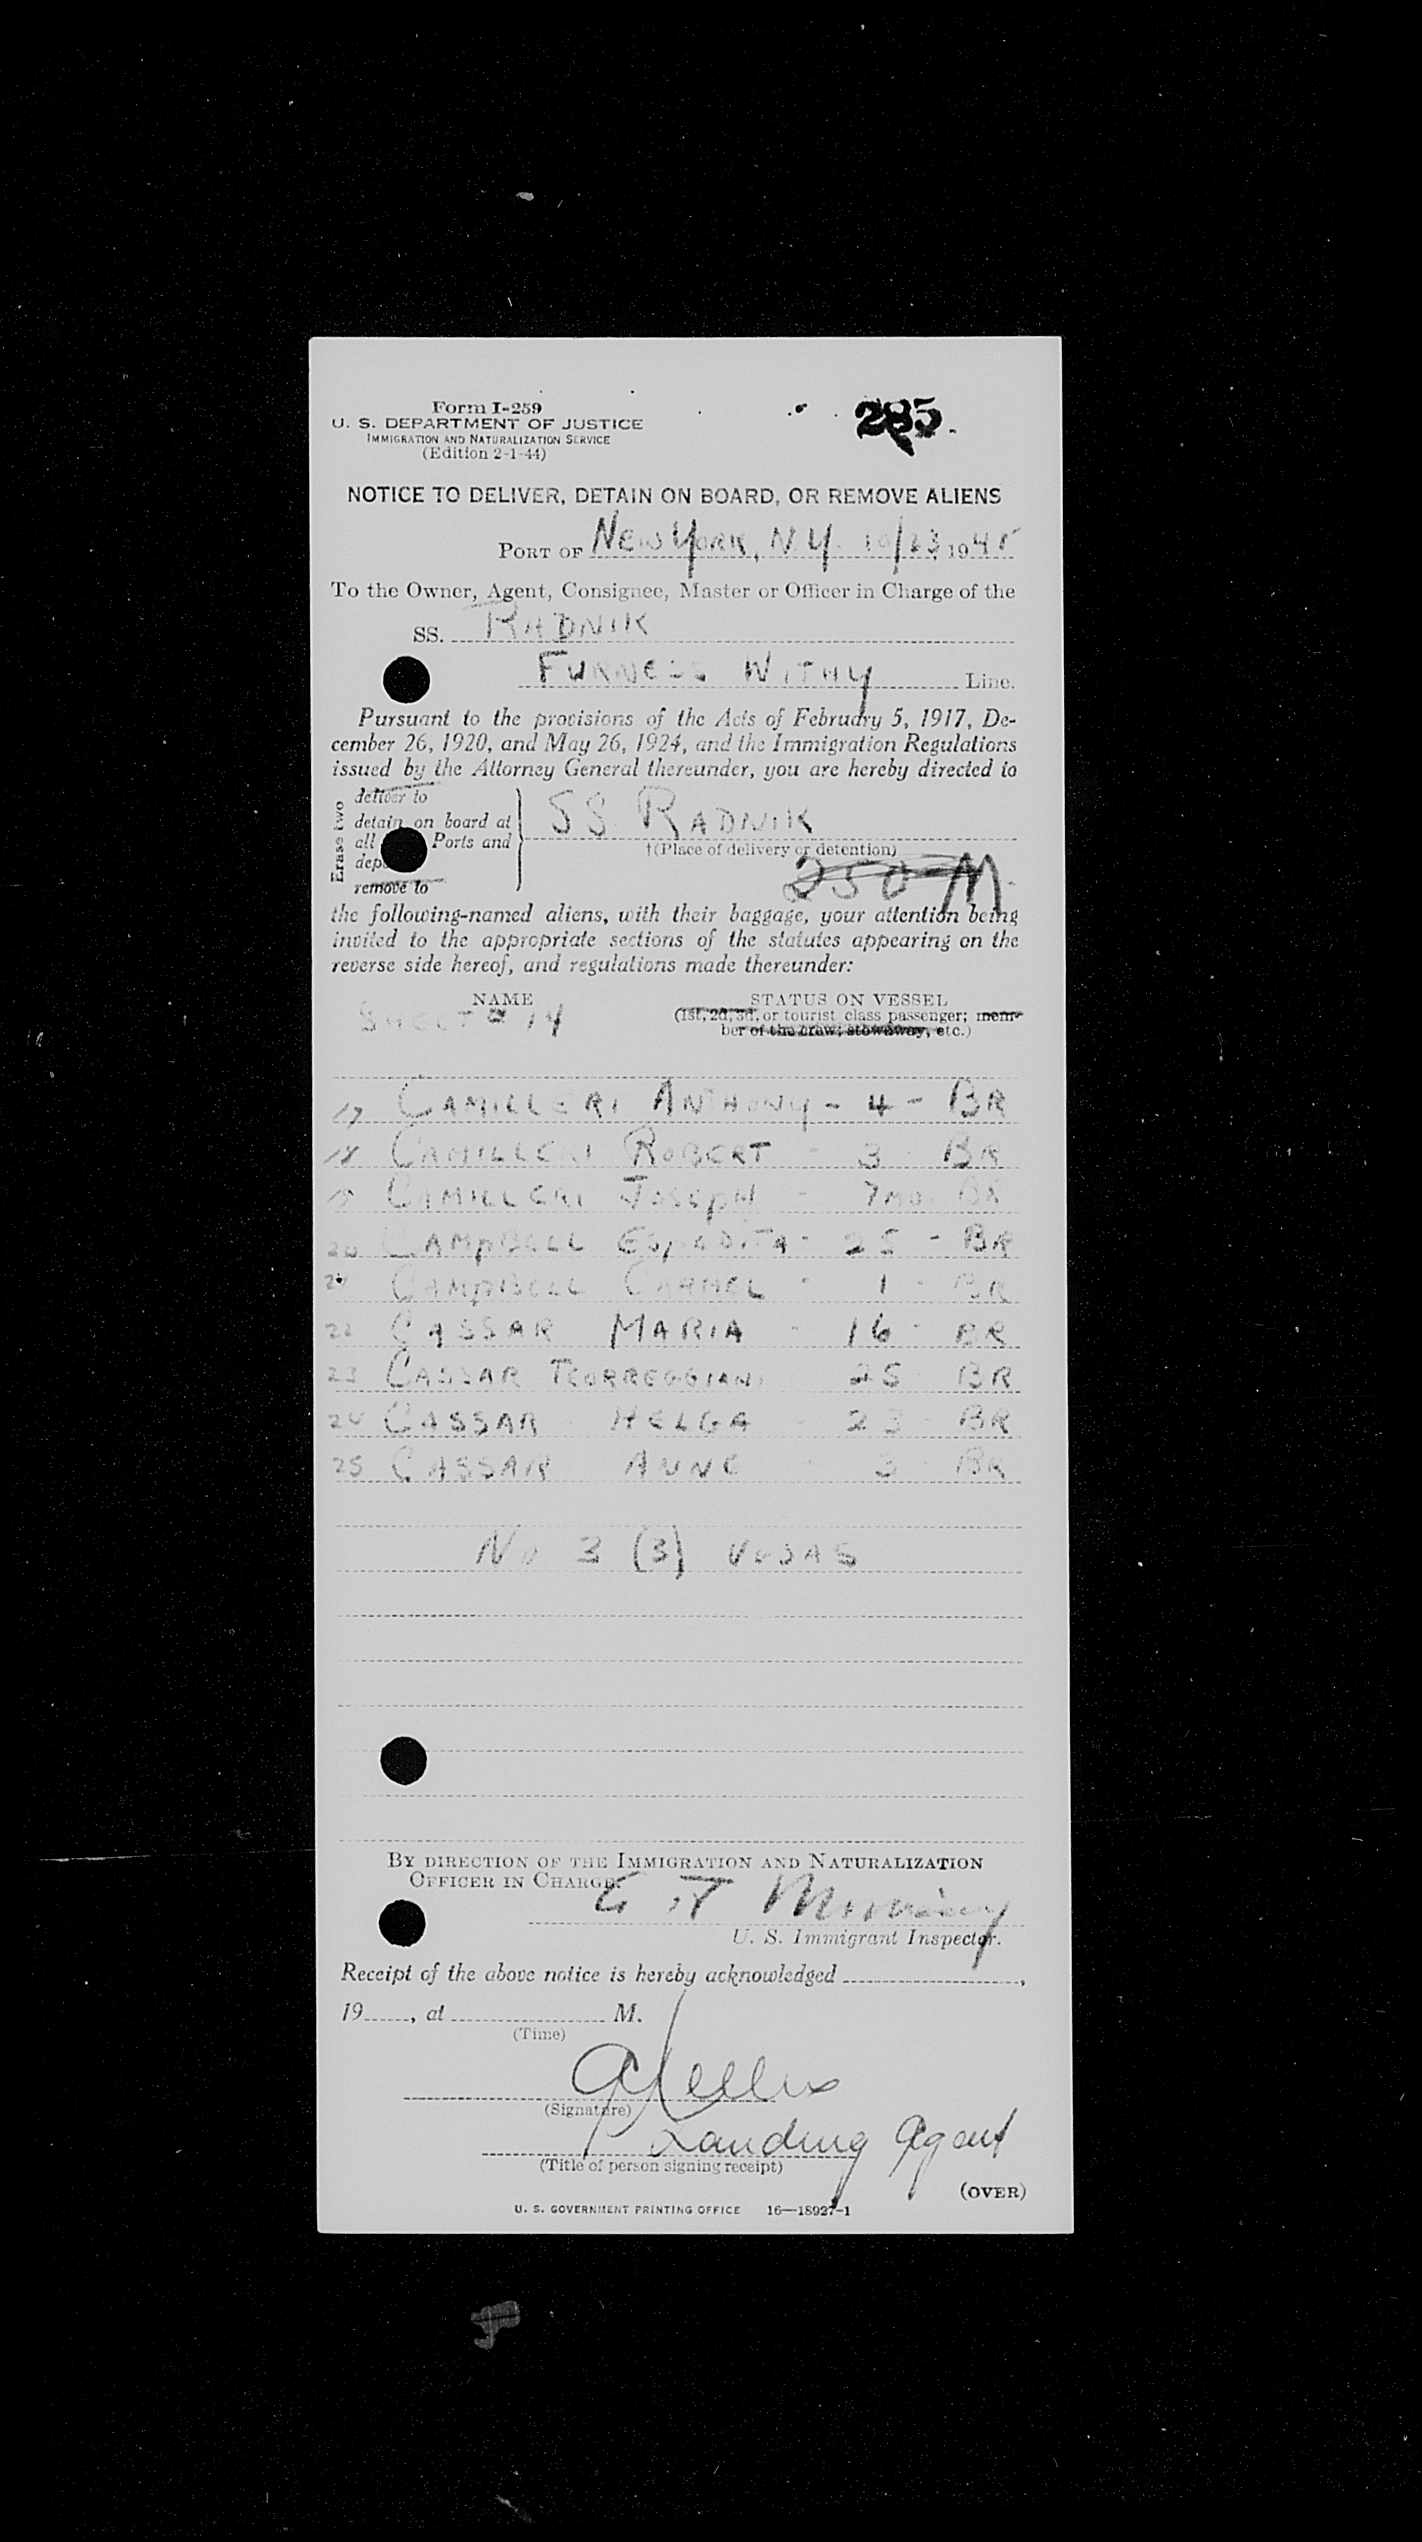 Form I-259
U. S. DEPARTMENT OF JUSTICE
IMMIGRATION AND NATURALIZATION SERVICE
(Edition 2-1-44)
285
NOTICE TO DELIVER, DETAIN ON BOARD, OR REMOVE ALIENS
PORT OF NEW YORK, N.Y. 10/23, 1945
To the Owner, Agent, Consignee, Master or Officer in Charge of the
SS. RADNIK
FURNESS WITHY Line.
Pursuant to the provisions of the Acts of February 5, 1917, De-
cember 26, 1920, and May 26, 1924, and the Immigration Regulations
issued by the Attorney General thereunder, you are hereby directed to
Erase two
deliver to
detain on board at
all Ports and
remove to
SS RADNIK
†(Place of delivery or detention)
250 M
the following-named aliens, with their baggage, your attention being
invited to the appropriate sections of the statutes appearing on the
reverse side hereof, and regulations made thereunder:
NAME STATUS ON VESSEL
SHEET # 14 (1st, 2d, 3d, or tourist class passenger; mem-
ber of the crew; stowaway, etc.)
17 CAMILLERI ANTHONY - 4 - BR
18 CAMILLERI ROBERT - 3 BR
19 CAMILLERI JOSEPH - 7 MO. BR
20 CAMPBELL - 25 - BR
21 CAMPBELL CARMEL - 1 - BR
22 CASSAR MARIA - 16 - BR
23 CASSAR 25 BR
24 CASSAR HELGA - 23 - BR
25 CASSAR ANNE - 3 - BR
No 3 (3) VISAS
BY DIRECTION OF THE IMMIGRATION AND NATURALIZATION
OFFICER IN CHARGE:
U. S. Immigrant Inspector.
Receipt of the above notice is hereby acknowledged ,
19 , at M.
(Time)
(Signature)
Landing Agent
(Title of person signing receipt)
(OVER)
U. S. GOVERNMENT PRINTING OFFICE 16—18927-1